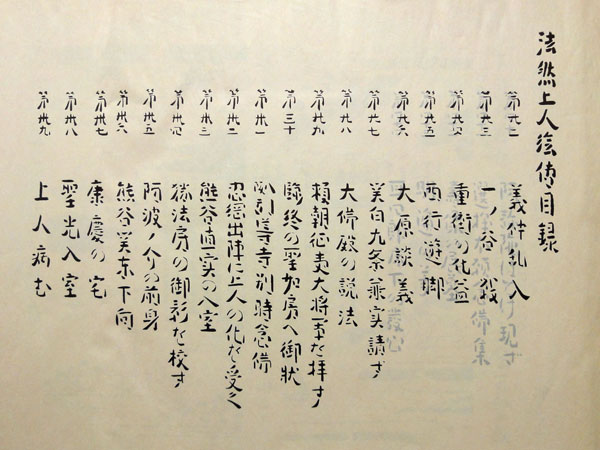 法然上人絵傳目録
第廿二 義仲乱入
第廿三 一ノ谷
第廿四 重衡の化益
第廿五 西行遊脚
第廿六 大原談義
第廿七 関白九条兼実請ず
第廿八 大佛殿の説法
第廿九 頼朝征夷大将軍を拝す
第三十 臨終の聖如房へ御状
第卅一 寺別時念佛
第卅二 忍 出陣に上人の化を受く
第卅三 熊谷直実の入室
第卅四 勝法房の御影を
第卅五 阿波ノ介の前身
第卅六 熊谷関東下向
第卅七 康慶の宅
第卅八 聖光入室
第卅九 上人病む